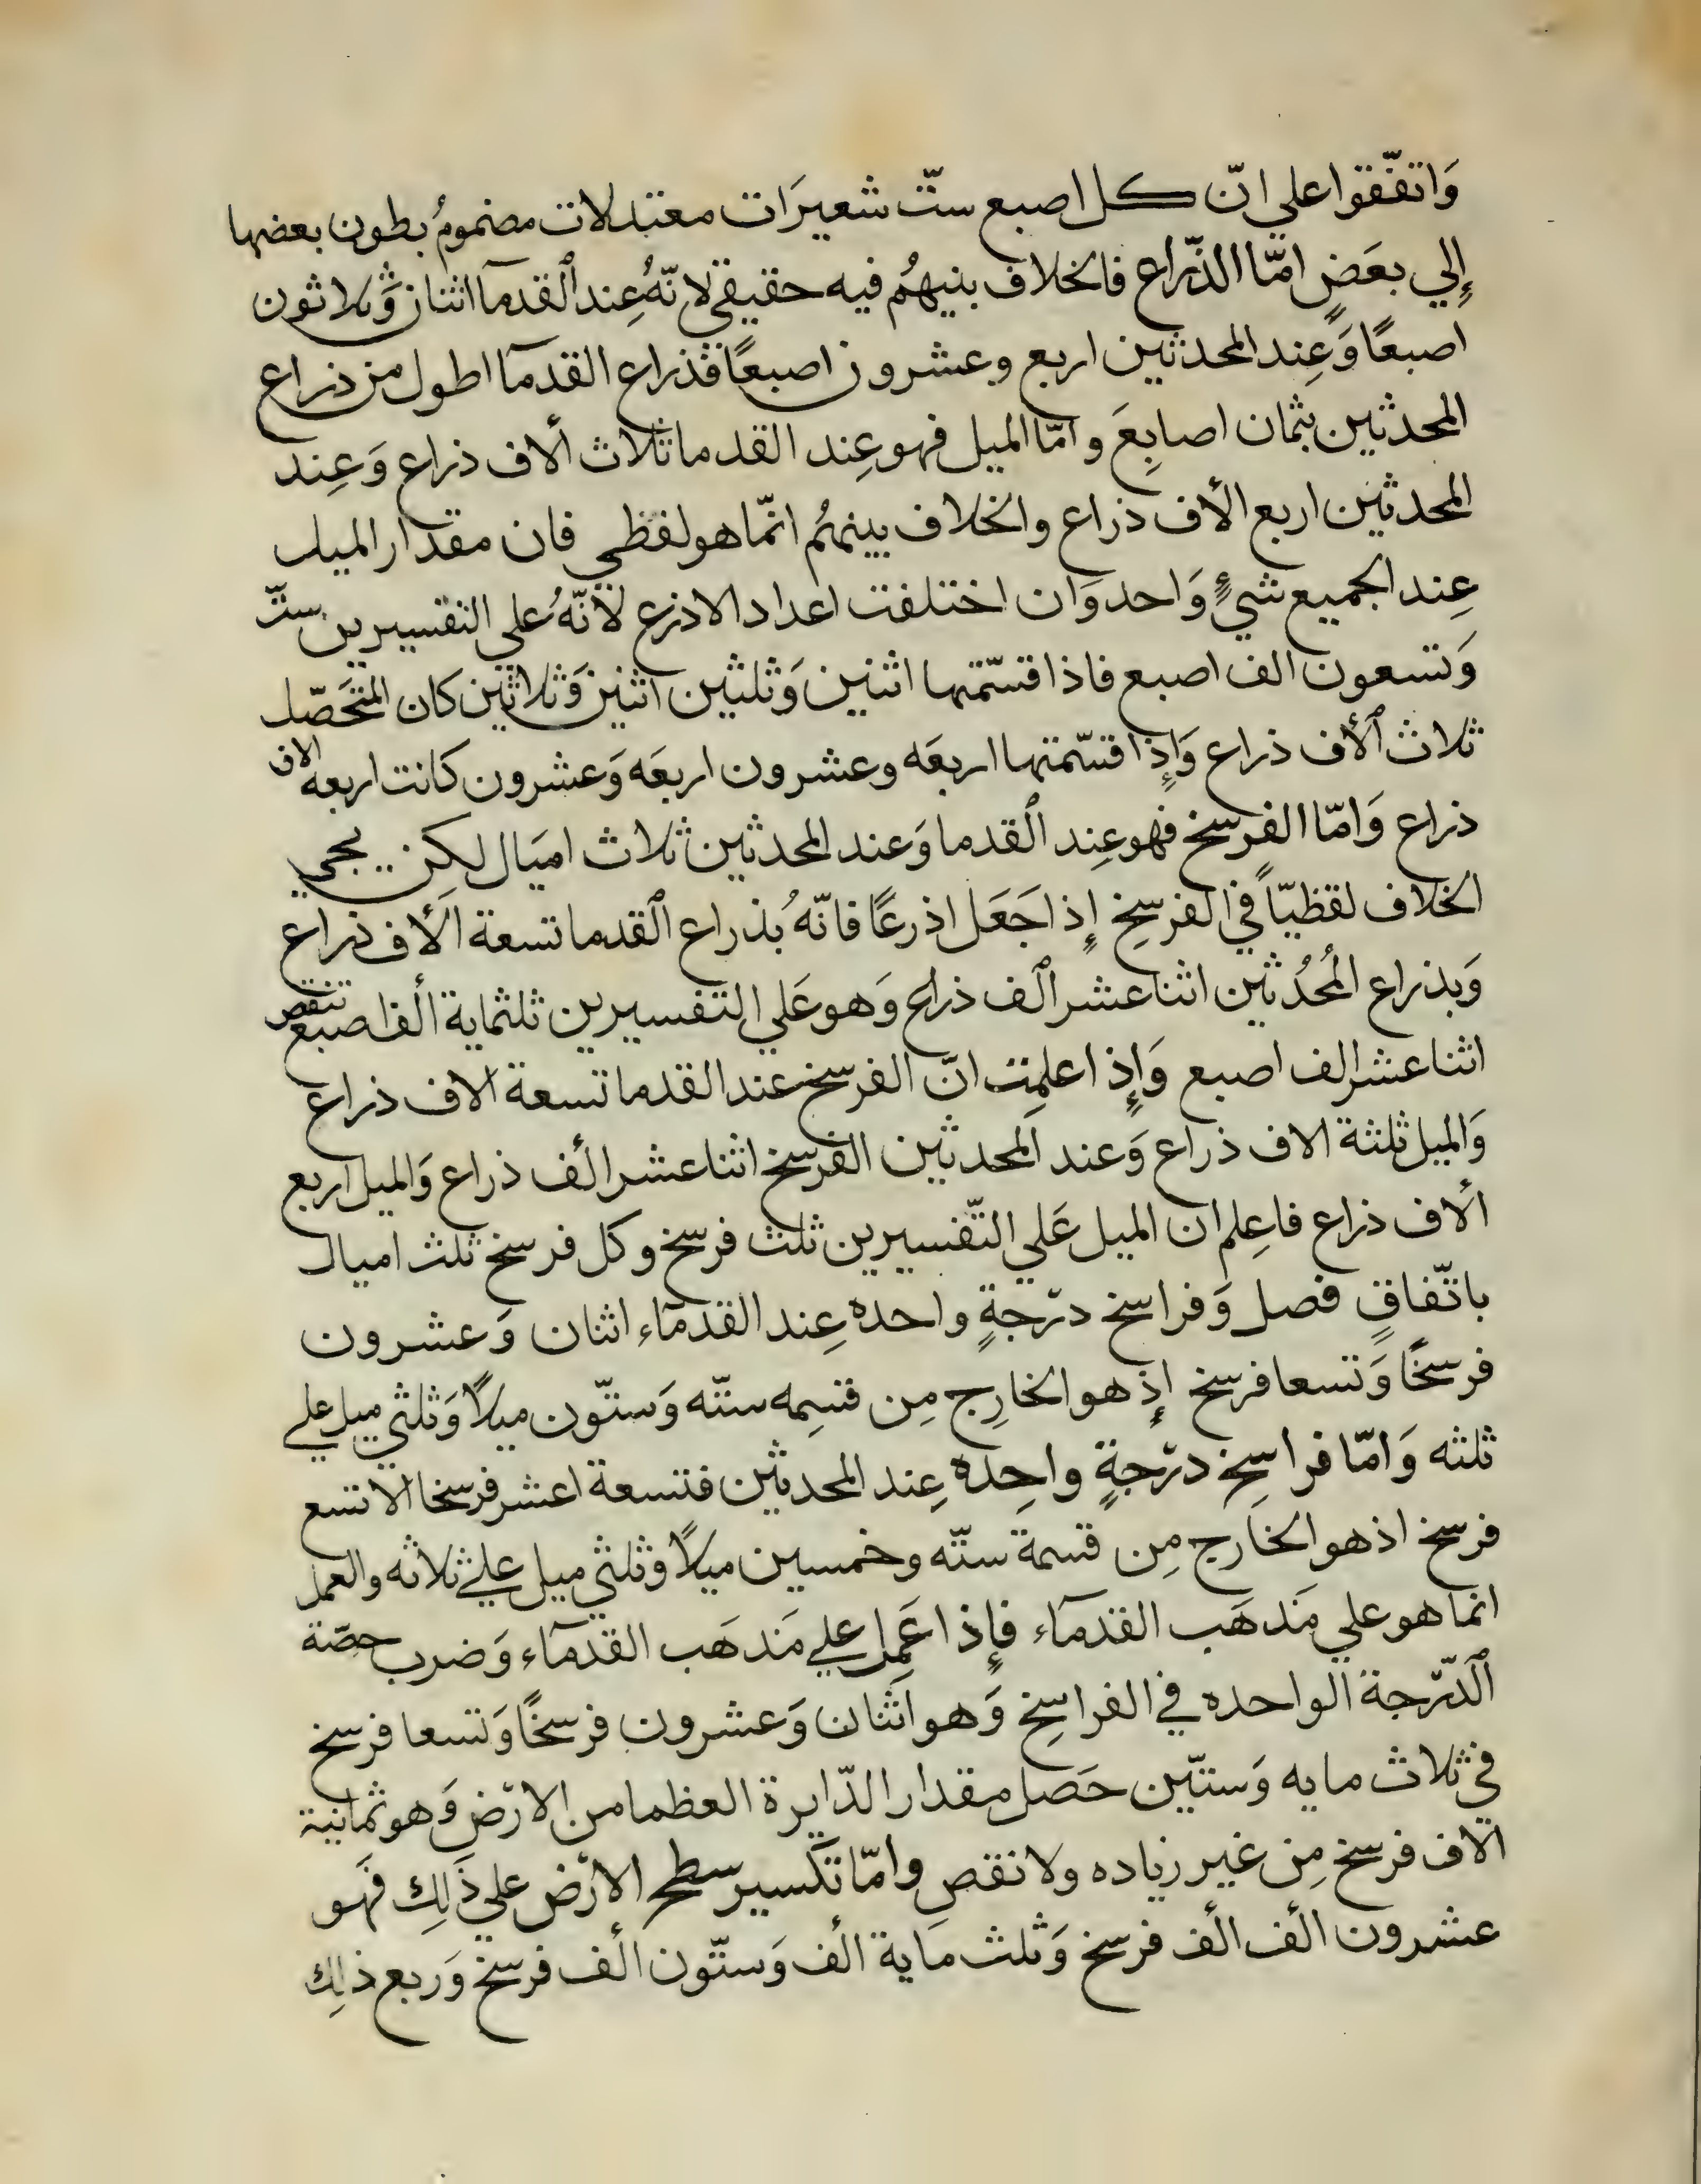 وَاتفّقوا علي انّ كل اصبع ستّ شعيرَات معتدلات مضمومُ بطون بعضها
إلي بعَضٍ امّا الذّراع فالخلاف بنيهُم فيه حقيقي لانّهُ عِند القدمآ اثنان وَّثلاثون
اصبعًا وَعِند المحدثين اربع وعشرون اصبعًا فذراع القدمآ اطول من ذراع
المحدثين بثمان اصابِعَ وامّا الميل فهو عِند القدما ثلاث ألاف ذراع وَعِند
المحدثين اربع ألأف ذراع والخلاف بينهُم انمّا هو لفظي فان مقدار الميل
عِند الجميع شيءٍ وَاحد وَان اختلفت اعداد الاذرع لأنّهُ علي التفسيرين ستّ
وَتسعون الف اصبع فاذا قسّمتها اثنين وَثلثين اثنين وَثلاثين كان المتحَصّل
ثلاث ألأف ذراع وَإِذا قسّمتها اربعَه وعشرون اربعَه وَعشرون كانت اربعه الاف
ذراع وَامّا الفرسخ فهو عِند القدما وَعند المحدثين ثلاث اميَال لكِن يجي
الخلاف لفظيّاً في الفرسخِ إِذا جَعَل اذرعًا فانّهُ بذراع القدما تسعة ألأف ذراع
وَبذراع المُحُدثين اثنا عشر ألف ذراع وَهو عَلي التفسيرين ثلثماية ألف اصبع تنقص
اثنا عشر الف اصبع وَإِذا علمِت انّ الفرسخ عند القدما تسعة الاف ذراع
وَالميل ثلثة الاف ذراع وَعند المحدثين الفرسخ اثنا عشر ألف ذراع وَالميل اربع
ألاف ذراع فاعِلم ان الميل عَلي التّفسيرين ثلث فرسخ وكل فرسخ ثلث اميال
باتّفاقٍ فصل وَفراسخ درَجةٍ واحده عِند القدمآء اثنان وَعشرون
فرسخًا وَتسعا فرسخ إِذ هو الخارِج مِن قسِمه ستّه وَستّون ميلاً وَثلثي ميل علي
ثلثه وَامّا فراسِخ درَجةٍ واحِده عِند المحدثين فتسعة اعشر فرسخا الا تسع
فرسخ اذ هو الخارج مِن قسمة ستّه وخمسين ميلاً وثلثي ميل علي ثلاثه والعمل
انما هو علي مَذهَب القدمآء فإِذا عَمِل علي مَذهَب القدمآء وَضرب حصّة
الدّرجة الواحده في الفراسِخ وَهو اثنان وَعشرون فرسخًا وَتسعا فرسخ
في ثلاث مايه وَستّين حَصل مقدار الدّايرة العظما من الارَض وَهو ثمانية
الاف فرسخ مِن غير زياده ولا نقص وامّا تكسير سطح الارَض علي ذَلِك فهو
عشرون ألف ألف فرسخ وَثلث مَاية ألف وَستّون ألف فرسخ وَربع ذلِك